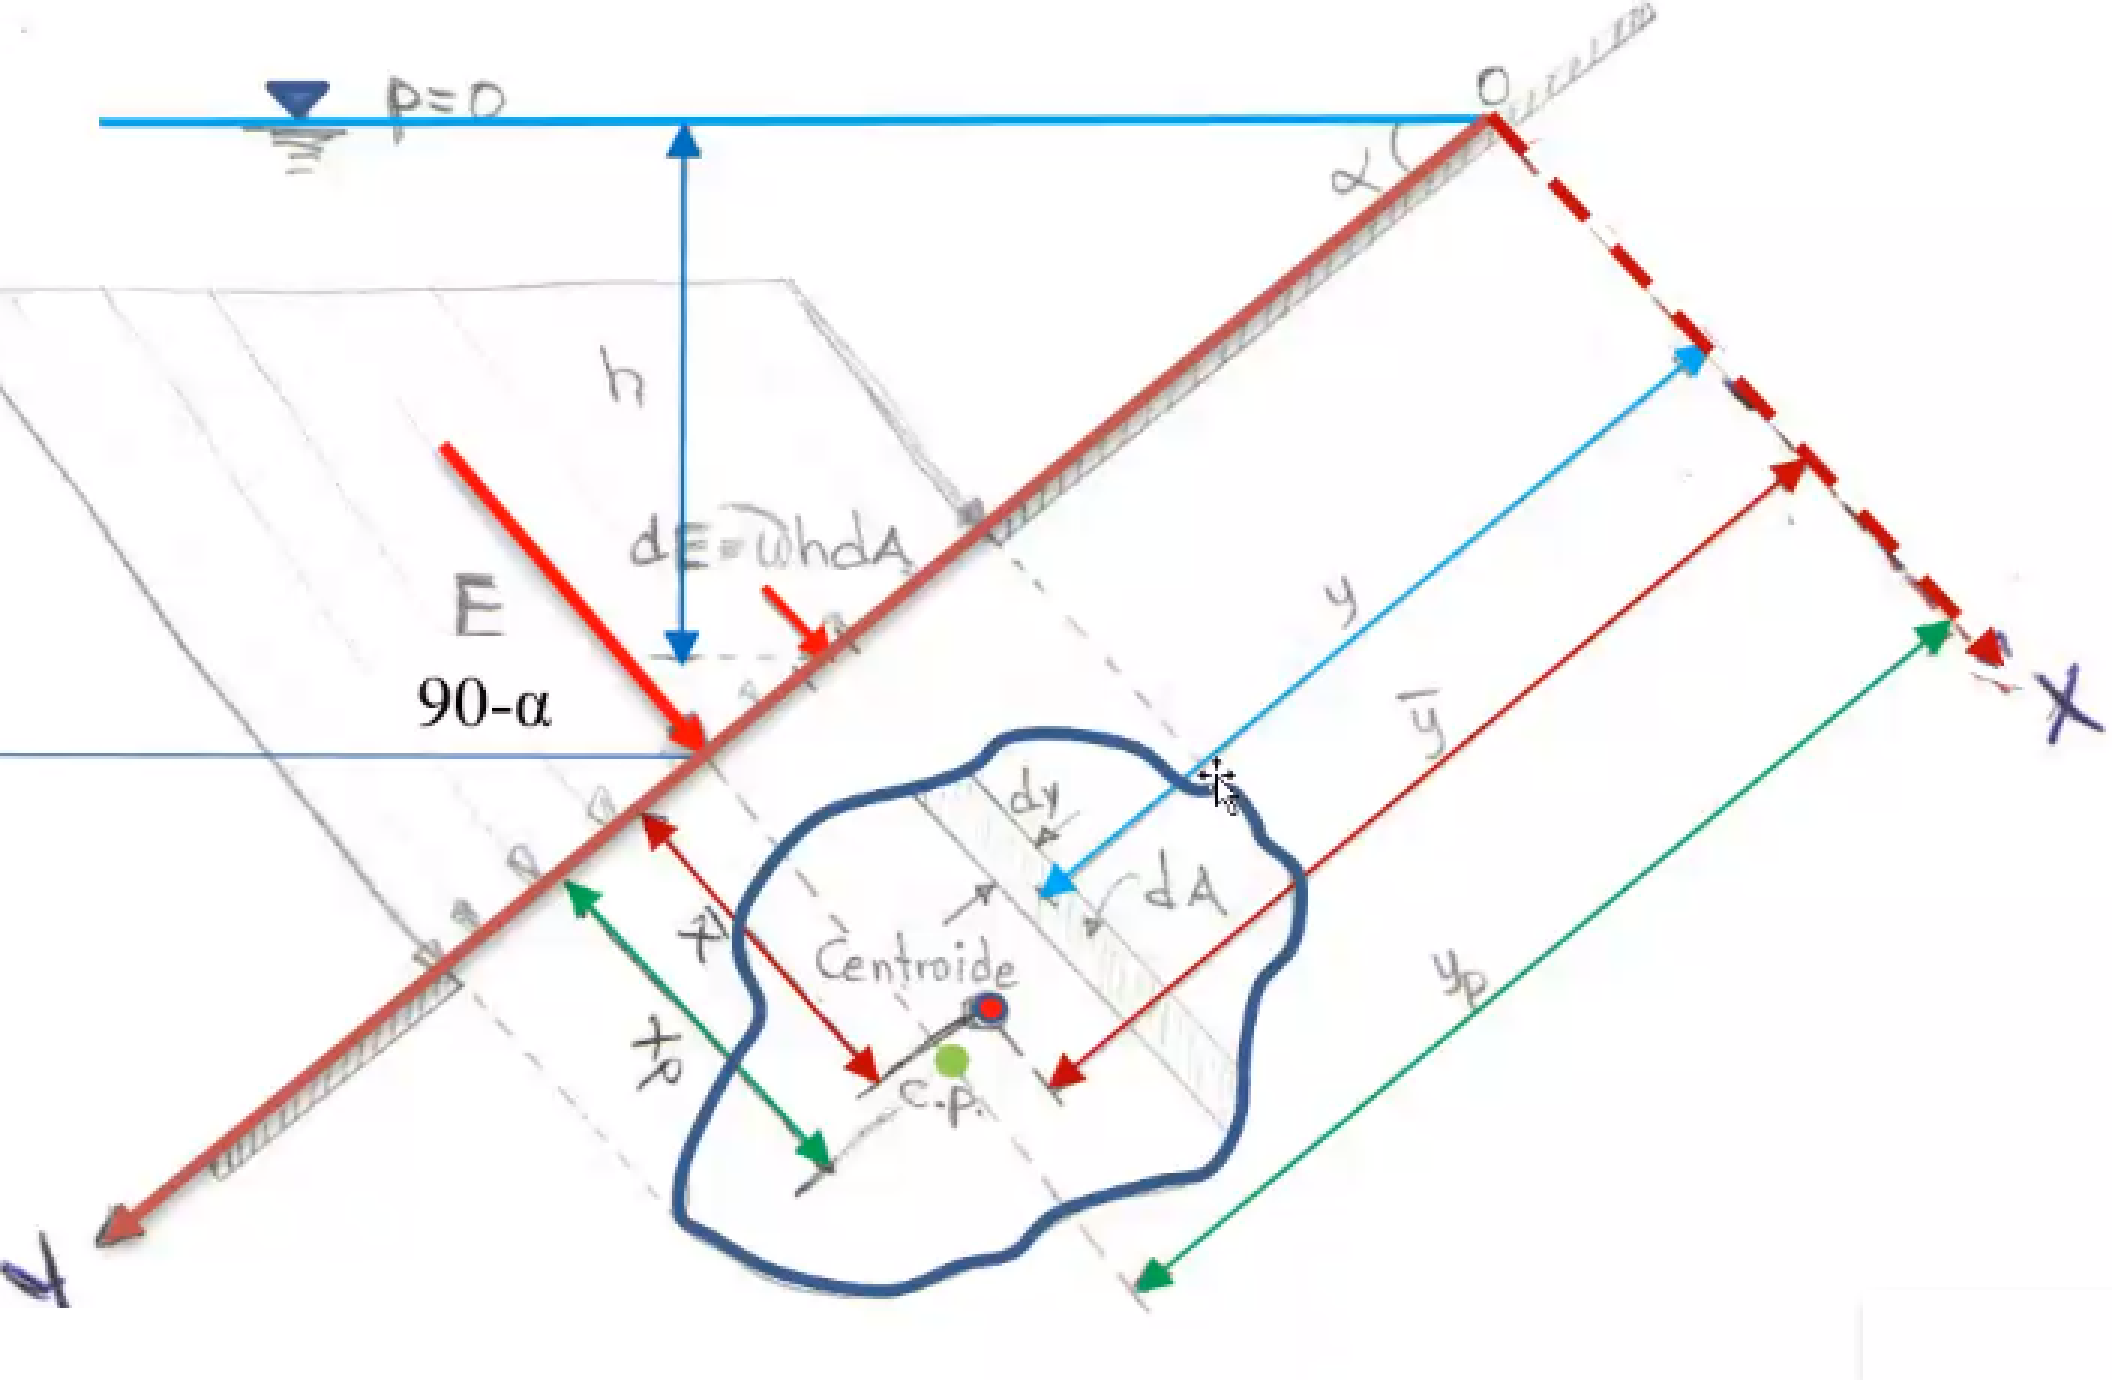 p=0
O
α
h
dE=ωhdA
E
90-α
y
ȳ
dy
dA
x̄
Centroide
yp
xp
c.p.
X
Y